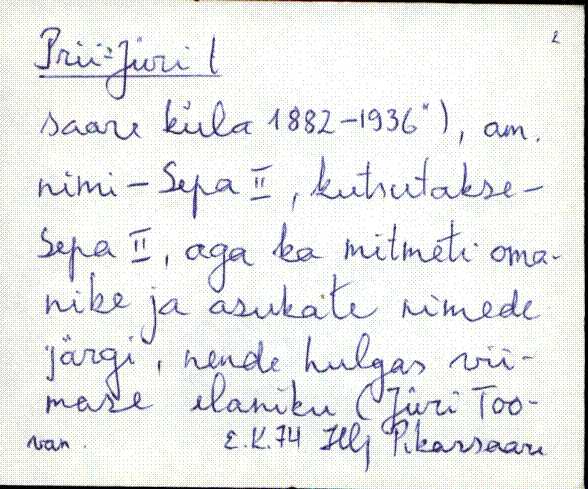 2
Prii-Jüri (
saare küla 1882-1936"), am.
nimi - Sepa II, kutsutakse -
Sepa II, aga ka mitmeti oma-
nike ja asukate nimede
järgi, nende hulgas vii-
mase elaniku (Jüri Too-
van. E.K.74 Pikarsaare